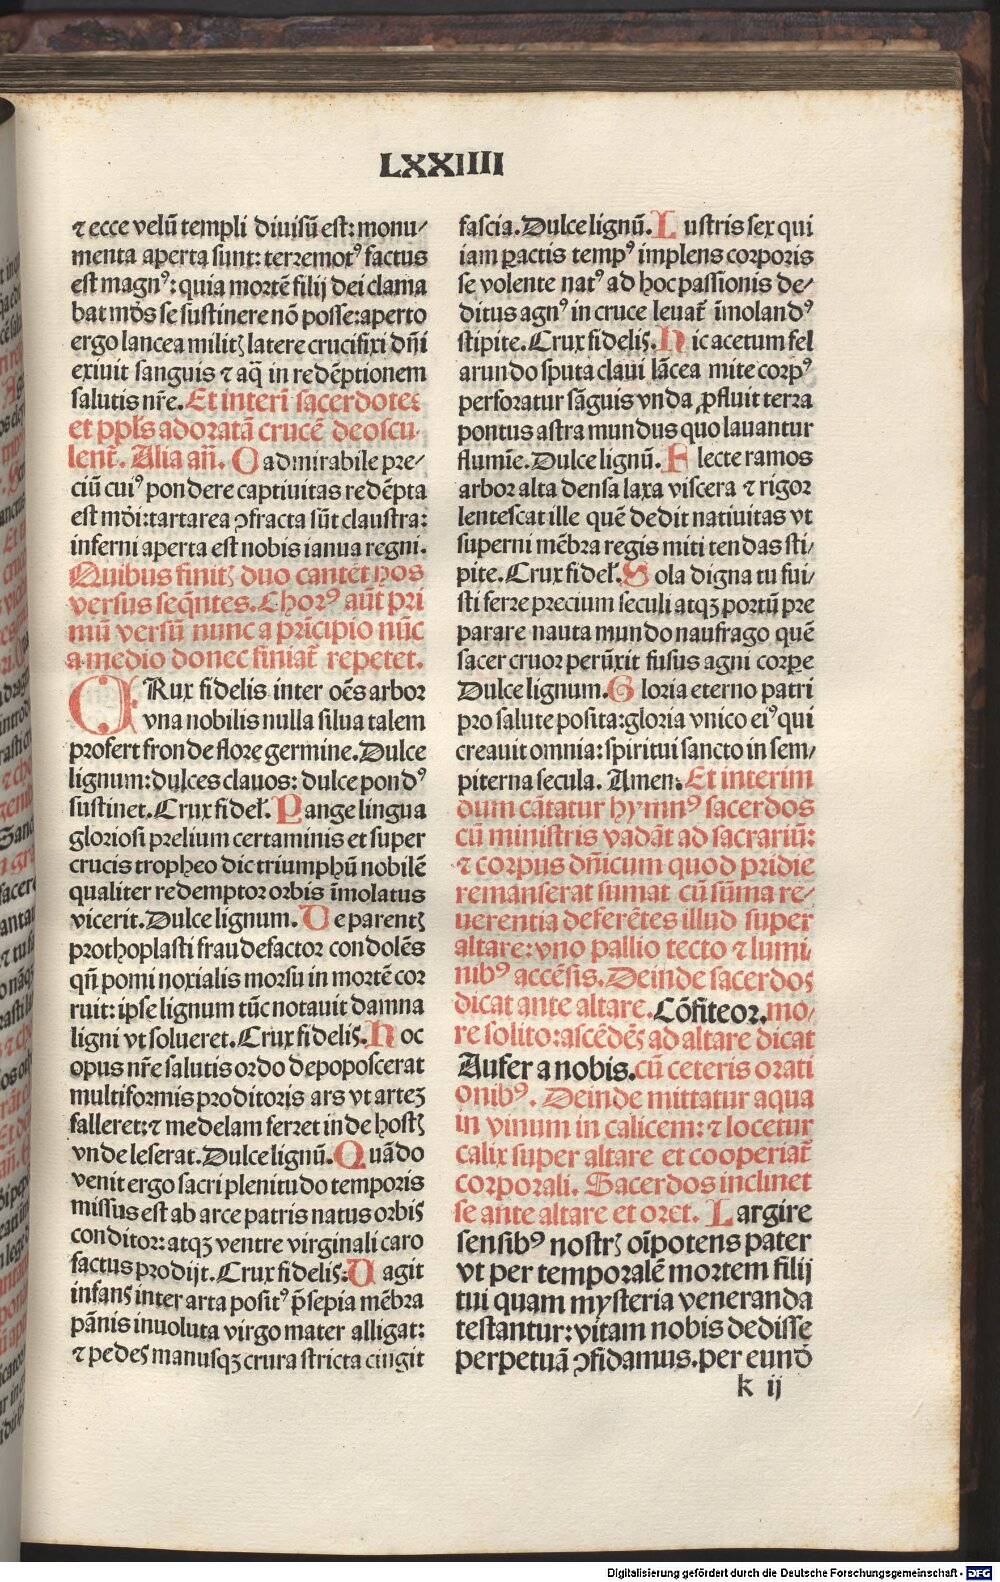 LXXIIII
⁊ ecce velū templi diuisū est: monu/
menta aperta sunt: terremotꝰ factus
est magnꝰ: quia mortē filij dei clama
bat mūdꝰ se sustinere nō posse: aperto
ergo lancea militꝭ latere crucifixi dñi
exiuit sanguis ⁊ aq̄ in redēptionem
salutis nr̄e. Et interī sacerdotes
et ppl̄s adoratā crucē deoscu-
lent᷑. Alia añ. O admirabile pre/
ciū cuiꝰ pondere captiuitas redēpta
est mūdi: tartarea ꝯfracta sūt claustra:
inferni aperta est nobis ianua regni.
Quibus finitꝭ duo cantēt hos
versus seq̄ntes. Chorꝰ aūt pri
mū versū nunc a prīcipio nūc
a medio donec finiat᷑ repetet.
CRux fidelis inter oēs arbor
vna nobilis nulla silua talem
profert fronde flore germine. Dulce
lignum: dulces clauos: dulce pondꝰ
sustinet. Crux fidel̄. Pange lingua
gloriosi prelium certaminis et super
crucis tropheo dic triumphū nobilē
qualiter redemptor orbis īmolatus
vicerit. Dulce lignum. De parentꝭ
prothoplasti fraude factor condolēs
qn̄ pomi noxialis morsu in mortē cor
ruit: ipse lignum tūc notauit damna
ligni vt solueret. Crux fidelis. Hoc
opus nr̄e salutis ordo depoposcerat
multiformis proditoris ars vt artez
falleret: ⁊ medelam ferret inde hostꝭ
vnde leserat. Dulce lignū. Quādo
venit ergo sacri plenitudo temporis
missus est ab arce patris natus orbis
conditor: atqꝫ ventre virginali caro
factus prodijt. Crux fidelis: Vagit
infans inter arta positꝰ p̄sepia mēbra
pānis inuoluta virgo mater alligat:
⁊ pedes manusqꝫ crura stricta cingit
fascia. Dulce lignū. Lustris sex qui
iam ꝑactis tempꝰ implens corporis
se volente natꝰ ad hoc passionis de/
ditus agnꝰ in cruce leuat᷑ īmolandꝰ
stipite. Crux fidelis. Hic acetum fel
arundo sputa claui lācea mite corpꝰ
perforatur sāguis vnda ꝓfluit terra
pontus astra mundus quo lauantur
flumīe. Dulce lignū. Flecte ramos
arbor alta densa laxa viscera ⁊ rigor
lentescat ille quē dedit natiuitas vt
superni mēbra regis miti tendas sti/
pite. Crux fidel̄. Sola digna tu fui/
sti ferre precium seculi atqꝫ portū pre
parare nauta mundo naufrago quē
sacer cruor perūxit fusus agni corpe
Dulce lignum. Gloria eterno patri
pro salute posita: gloria vnico eiꝰ qui
creauit omnia: spiritui sancto in sem/
piterna secula. Amen. Et interim
dum cātatur hymnꝰ sacerdos
cū ministris vadāt ad sacrariū:
⁊ corpus dn̄icum quod pridie
remanserat sumat cū sūma re/
uerentia deferētes illud super
altare: vno pallio tecto ⁊ lumi/
nibꝰ accēsis. Deinde sacerdos
dicat ante altare. Cōfiteor. mo/
re solito: ascēdēs ad altare dicat
Aufer a nobis. cū ceteris orati
onibꝰ. Deinde mittatur aqua
in vinum in calicem: ⁊ locetur
calix super altare et cooperiat᷑
corporali. Sacerdos inclinet
se ante altare et oret. Largire
sensibꝰ nostrꝭ oīpotens pater
vt per temporalē mortem filij
tui quam mysteria veneranda
testantur: vitam nobis dedisse
perpetuā ꝯfidamus. per eund̄
k ij
Digitalisierung gefördert durch die Deutsche Forschungsgemeinschaft - DFG